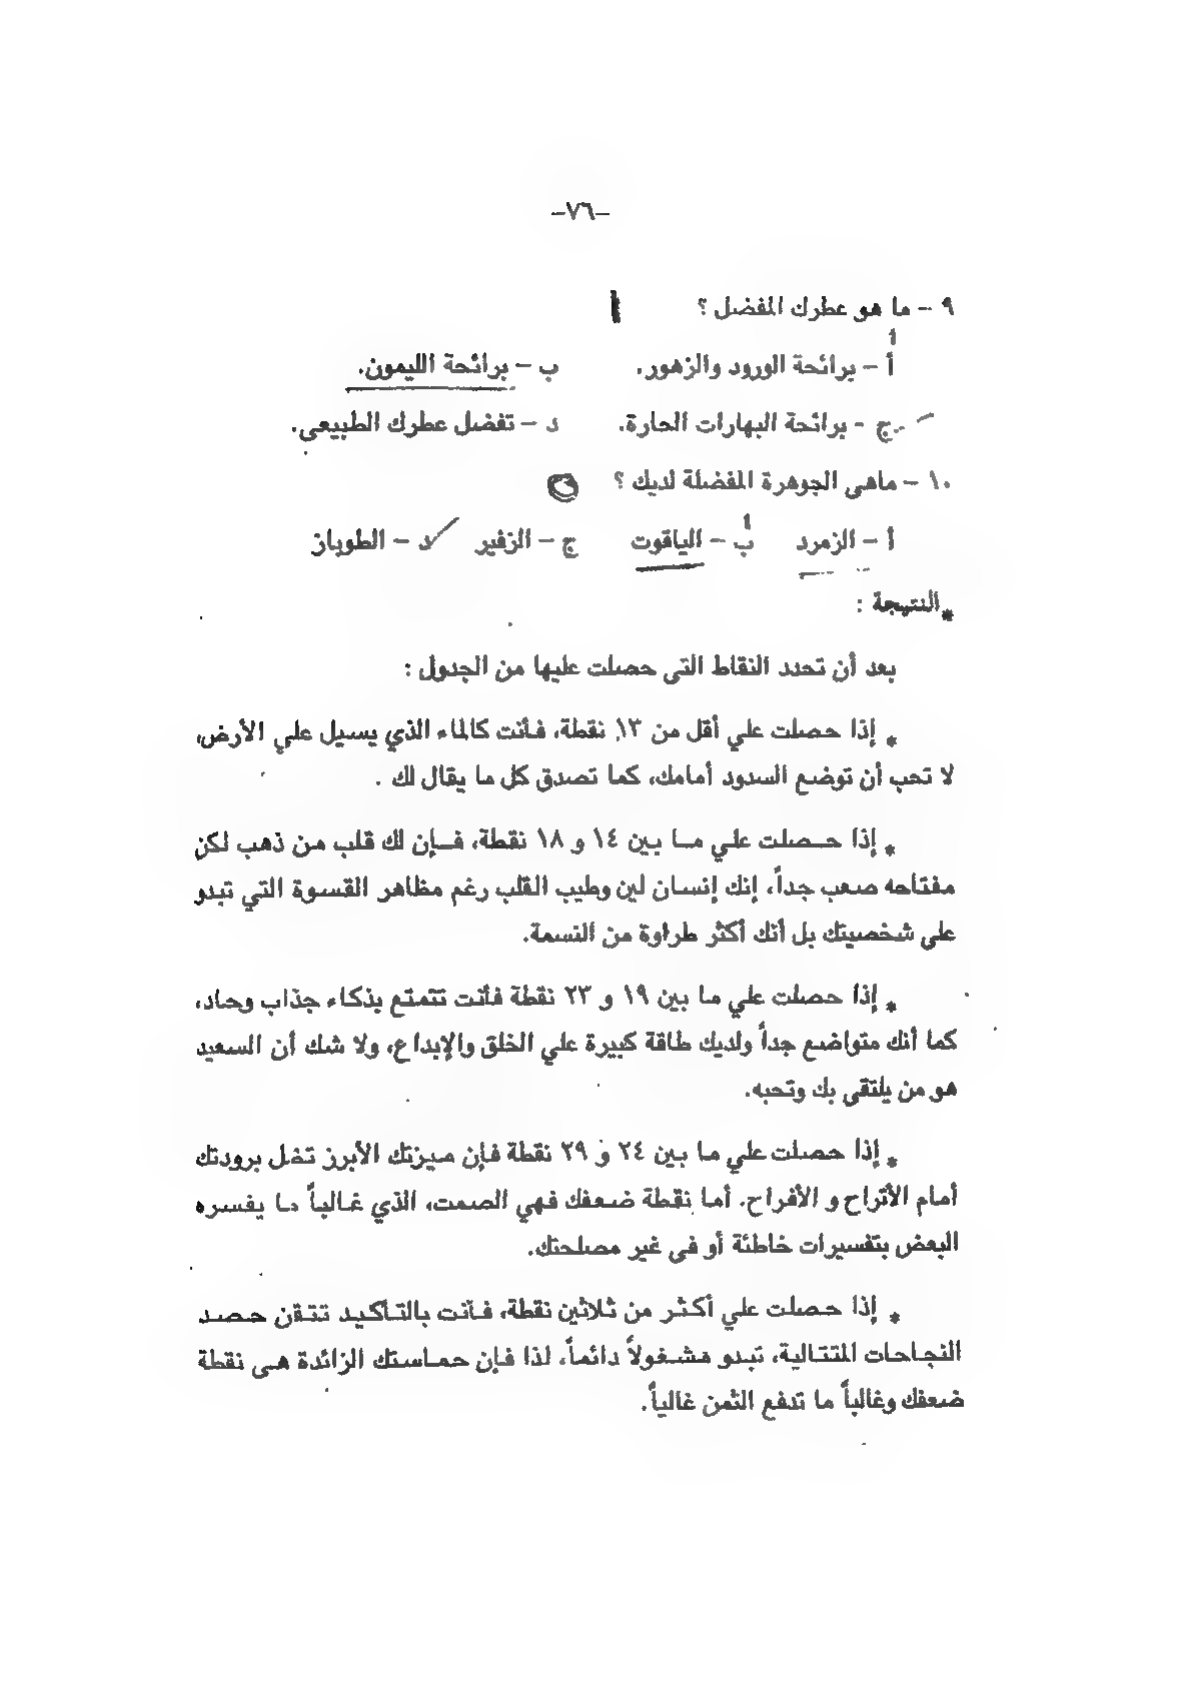 -٧٦-
٩ - ما هو عطرك المفضل ؟
أ
أ - برائحة الورود والزهور. ب - برائحة الليمون.
ج - برائحة البهارات الحارة. د - تفضل عطرك الطبيعى.
١٠ - ماهى الجوهرة المفضلة لديك ؟
أ
أ - الزمرد ب - الياقوت ج - الزفير د - الطوباز
* النتيجة :
بعد أن تحدد النقاط التى حصلت عليها من الجدول :
* إذا حصلت علي أقل من ١٣ نقطة، فأنت كالماء الذي يسيل علي الأرض،
لا تحب أن توضع السدود أمامك، كما تصدق كل ما يقال لك .
* إذا حصلت علي ما بين ١٤ و ١٨ نقطة، فإن لك قلب من ذهب لكن
مفتاحه صعب جداً، إنك إنسان لين وطيب القلب رغم مظاهر القسوة التي تبدو
علي شخصيتك بل أنك أكثر طراوة من النسمة.
* إذا حصلت علي ما بين ١٩ و ٢٣ نقطة فأنت تتمتع بذكاء جذاب وحاد،
كما أنك متواضع جداً ولديك طاقة كبيرة علي الخلق والإبداع، ولا شك أن السعيد
هو من يلتقى بك وتحبه.
* إذا حصلت علي ما بين ٢٤ و ٢٩ نقطة فإن ميزتك الأبرز تضل برودتك
أمام الأتراح و الأفراح. أما نقطة ضعفك فهي الصمت، الذي غالباً ما يفسره
البعض بتفسيرات خاطئة أو فى غير مصلحتك.
* إذا حصلت علي أكثر من ثلاثين نقطة، فأنت بالتأكيد تتقن حصد
النجاحات المتتالية، تبدو مشغولاً دائماً، لذا فإن حماستك الزائدة هى نقطة
ضعفك وغالباً ما تدفع الثمن غالياً.